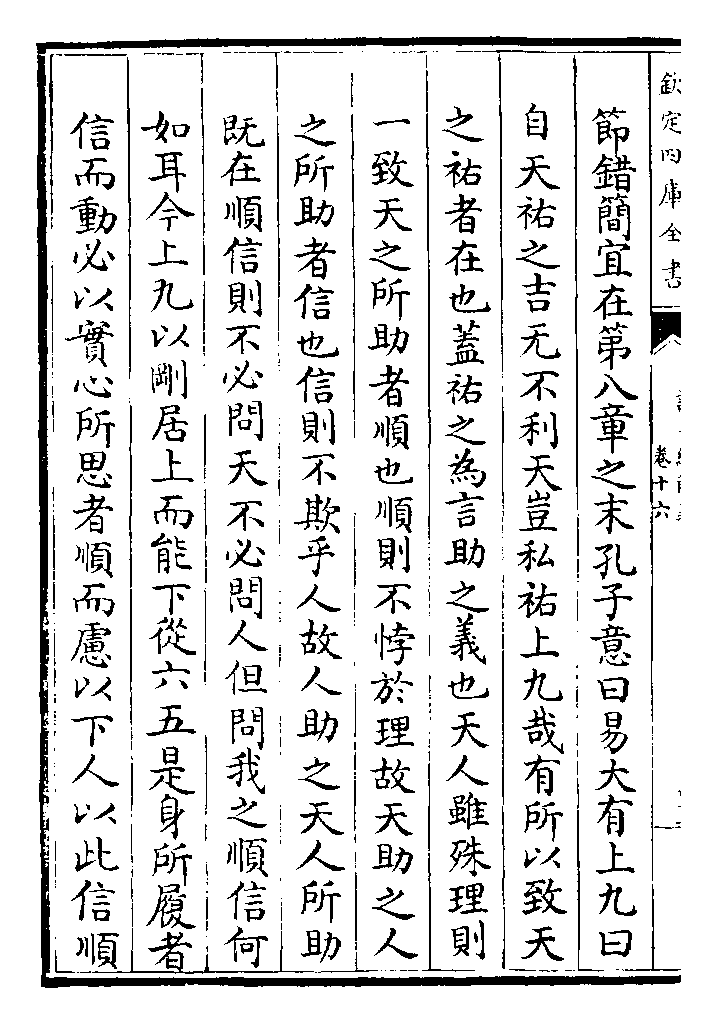 欽定四庫全書
卷十六
節錯簡宜在第八章之末孔子意曰易大有上九曰
自天祐之吉无不利天豈私祐上九哉有所以致天
之祐者在也蓋祐之為言助之義也天人雖殊理則
一致天之所助者順也順則不悖於理故天助之人
之所助者信也信則不欺乎人故人助之天人所助
既在順信則不必問天不必問人但問我之順信何
如耳今上九以剛居上而能下從六五是身所履者
信而動必以實心所思者順而慮以下人以此信順